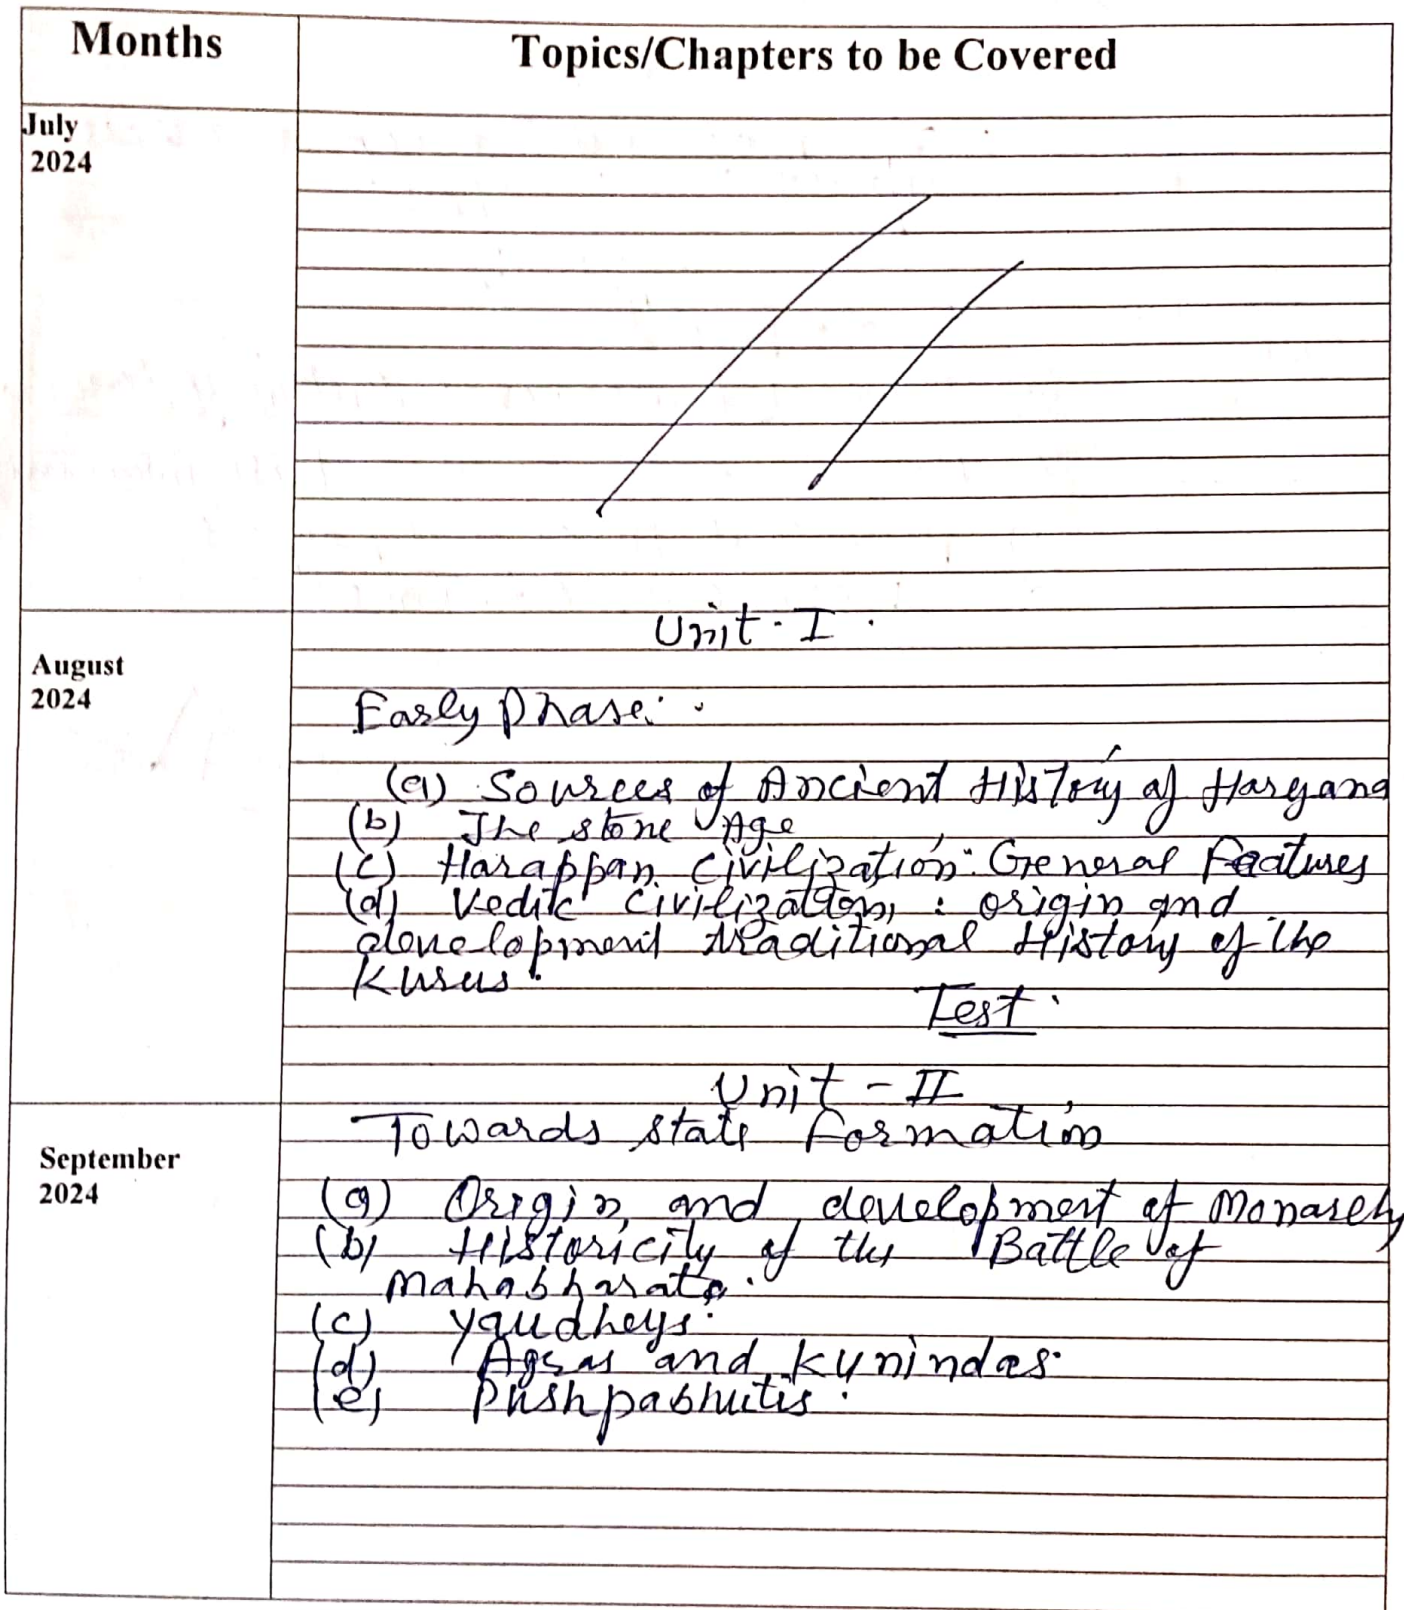 Months
Topics/Chapters to be Covered
July
2024
Unit - I
August
2024
Early Phase:
(a) Sources of Ancient History of Haryana
(b) The stone Age
(c) Harappan Civilization: General Features
(d) Vedic Civilization, : origin and
development traditional History of the
Kurus.
Test
Unit - II
Towards state Formation
September
2024
(a) Origin and development of Monarchy
(b) Historicity of the Battle of
Mahabharata.
(c) Yaudheys.
(d) Agras and Kunindas.
(e) Pushpabhutis.